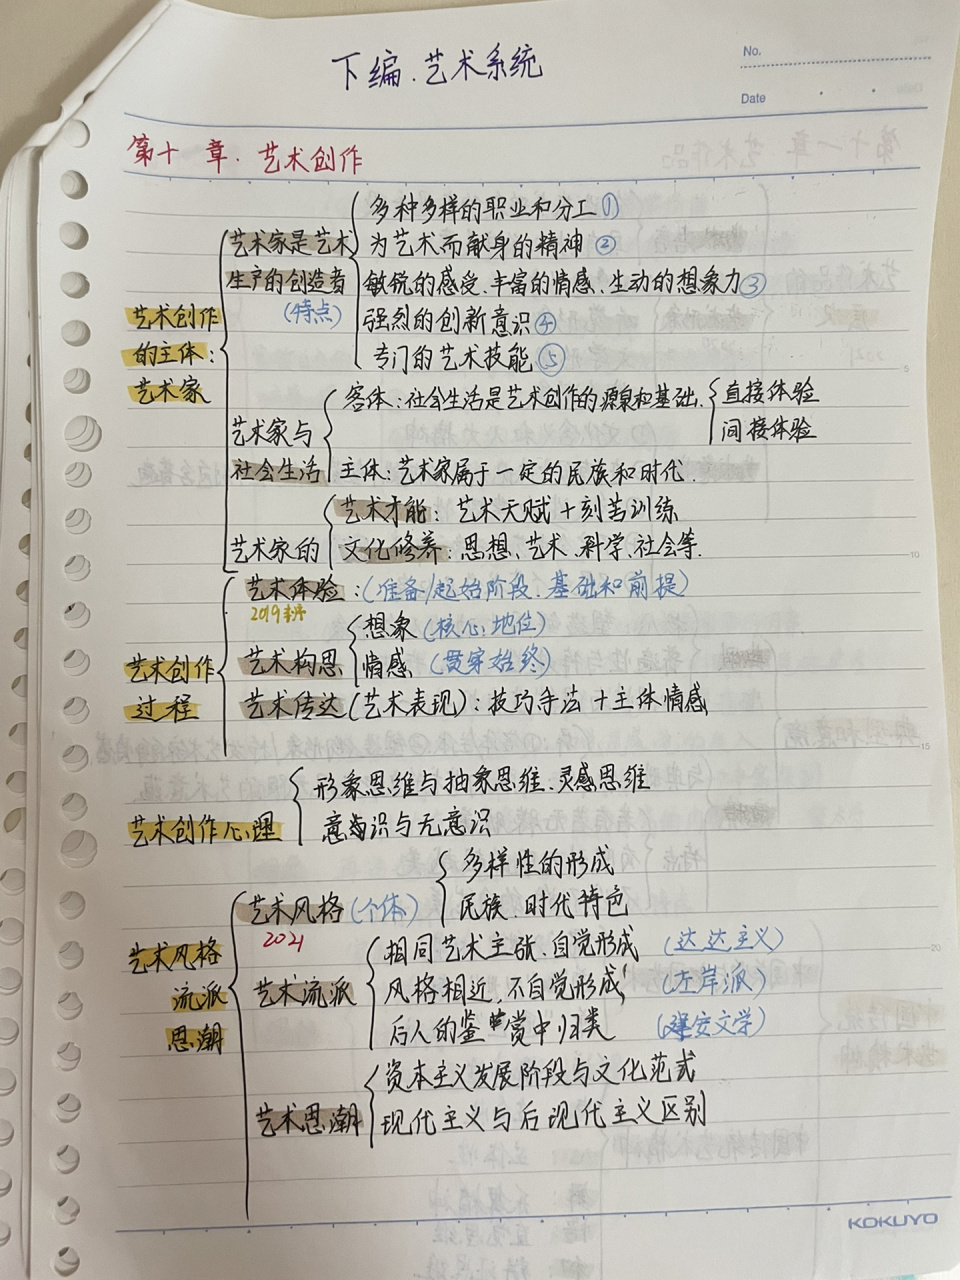 下编.艺术系统
No.
Date
第十 章.艺术创作
多种多样的职业和分工①
艺术家是艺术
为艺术而献身的精神 ②
生产的创造者
敏锐的感受.丰富的情感、生动的想象力③
(特点)
强烈的创新意识④
专门的艺术技能⑤
艺术创作
的主体:
艺术家
客体:社会生活是艺术创作的源泉和基础.
直接体验
间接体验
艺术家与
社会生活
主体:艺术家属于一定的民族和时代.
艺术家的
艺术才能:艺术天赋+刻苦训练
文化修养:思想、艺术.科学、社会等.
艺术体验:(准备/起始阶段.基础和前提)
2019
想象(核心地位)
艺术创作
过程
艺术构思
情感(贯穿始终)
艺术传达(艺术表现):技巧手法+主体情感
形象思维与抽象思维.灵感思维
艺术创作心理
意识与无意识
多样性的形成
艺术风格(个体)
民族.时代特色
2021
艺术风格
流派
思潮
相同艺术主张.自觉形成 (达达主义)
艺术流派
风格相近,不自觉形成 (左岸派)
后人的鉴赏中归类 (建安文学)
资本主义发展阶段与文化范式
艺术思潮
现代主义与后现代主义区别
5
10
15
20
KOKUYO